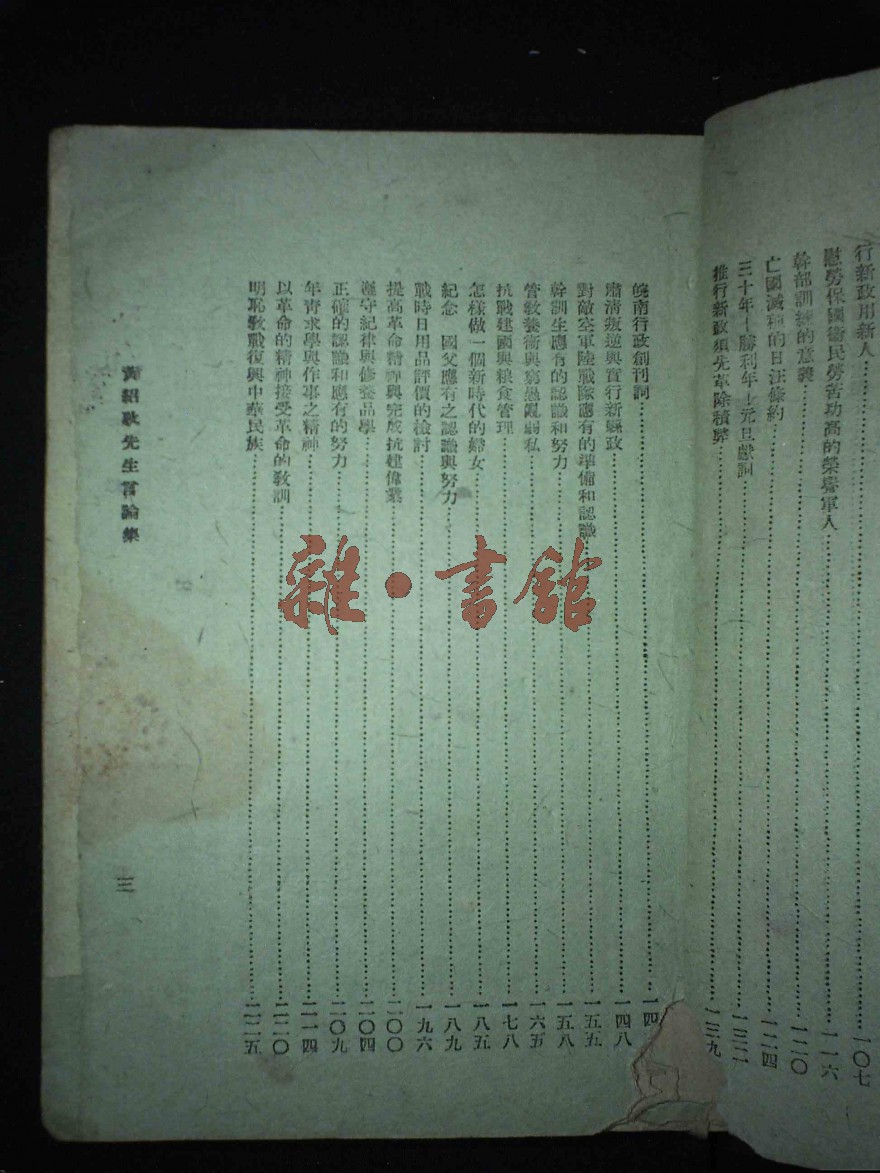 行新政用新人……一〇七
慰勞保國衛民勞苦功高的榮譽軍人……一一六
幹部訓練的意義……一二〇
亡國滅種的日汪條約……一二四
三十年—勝利年—元旦獻詞……一三二
推行新政須先革除積弊……一三九
皖南行政創刊詞……一四
肅清叛逆與實行新縣政……一四八
對敵空軍陸戰隊應有的準備和認識……一五五
幹訓生應有的認識和努力……一五八
管教養衛與窮愚亂弱私……一六五
抗戰建國與粮食管理……一七八
怎樣做一個新時代的婦女……一八五
紀念 國父應有之認識與努力……一八九
戰時日用品評價的檢討……一九六
提高革命精神與完成抗建偉業……二〇〇
遵守紀律與修養品學……二〇四
正確的認識和應有的努力……二〇九
年青求學與作事之精神……二一四
以革命的精神接受革命的教訓……二二〇
明恥教戰復興中華民族……二二五
黃紹耿先生言論集
三
雜·書館